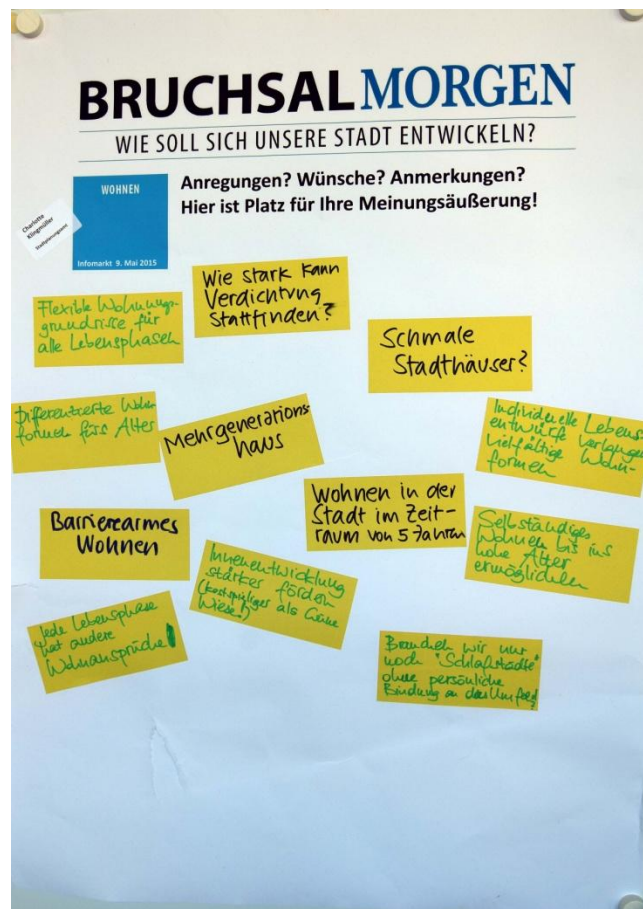 BRUCHSALMORGEN
WIE SOLL SICH UNSERE STADT ENTWICKELN?
WOHNEN
Infomarkt 9. Mai 2015
Charlotte
Klingmüller
Stadtplanungsamt
Anregungen? Wünsche? Anmerkungen?
Hier ist Platz für Ihre Meinungsäußerung!
Flexible Wohnungs-
grundrisse für
alle Lebensphasen
Wie stark kann
Verdichtung
stattfinden?
Schmale
Stadthäuser?
Differenzierte Wohn-
formen fürs Alter
Mehrgenerations-
haus
Individuelle Lebens-
entwürfe verlangen
vielfältige Wohn-
formen
Barrierearmes
Wohnen
Wohnen in der
Stadt im Zeit-
raum von 5 Jahren
Selbständiges
Wohnen bis ins
hohe Alter
ermöglichen
Innenentwicklung
stärker fördern
(kostspieliger als Grüne
Wiese!)
Jede Lebensphase
hat andere
Wohnansprüche!
Brauchen wir nur
noch "Schlafstädte"
ohne persönliche
Bindung an das Umfeld?